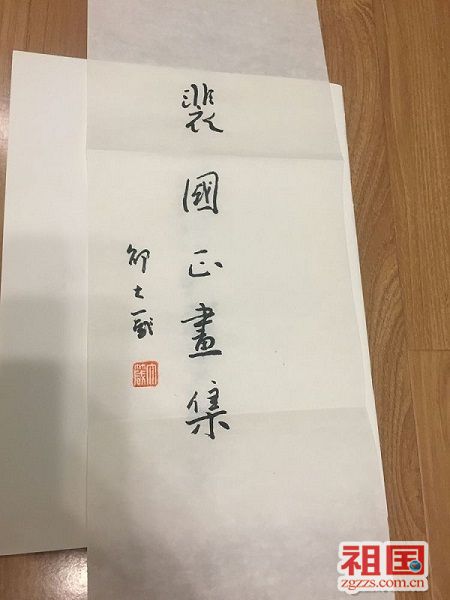 裴國正畫集
邵大箴
祖国
zgzzs.com.cn